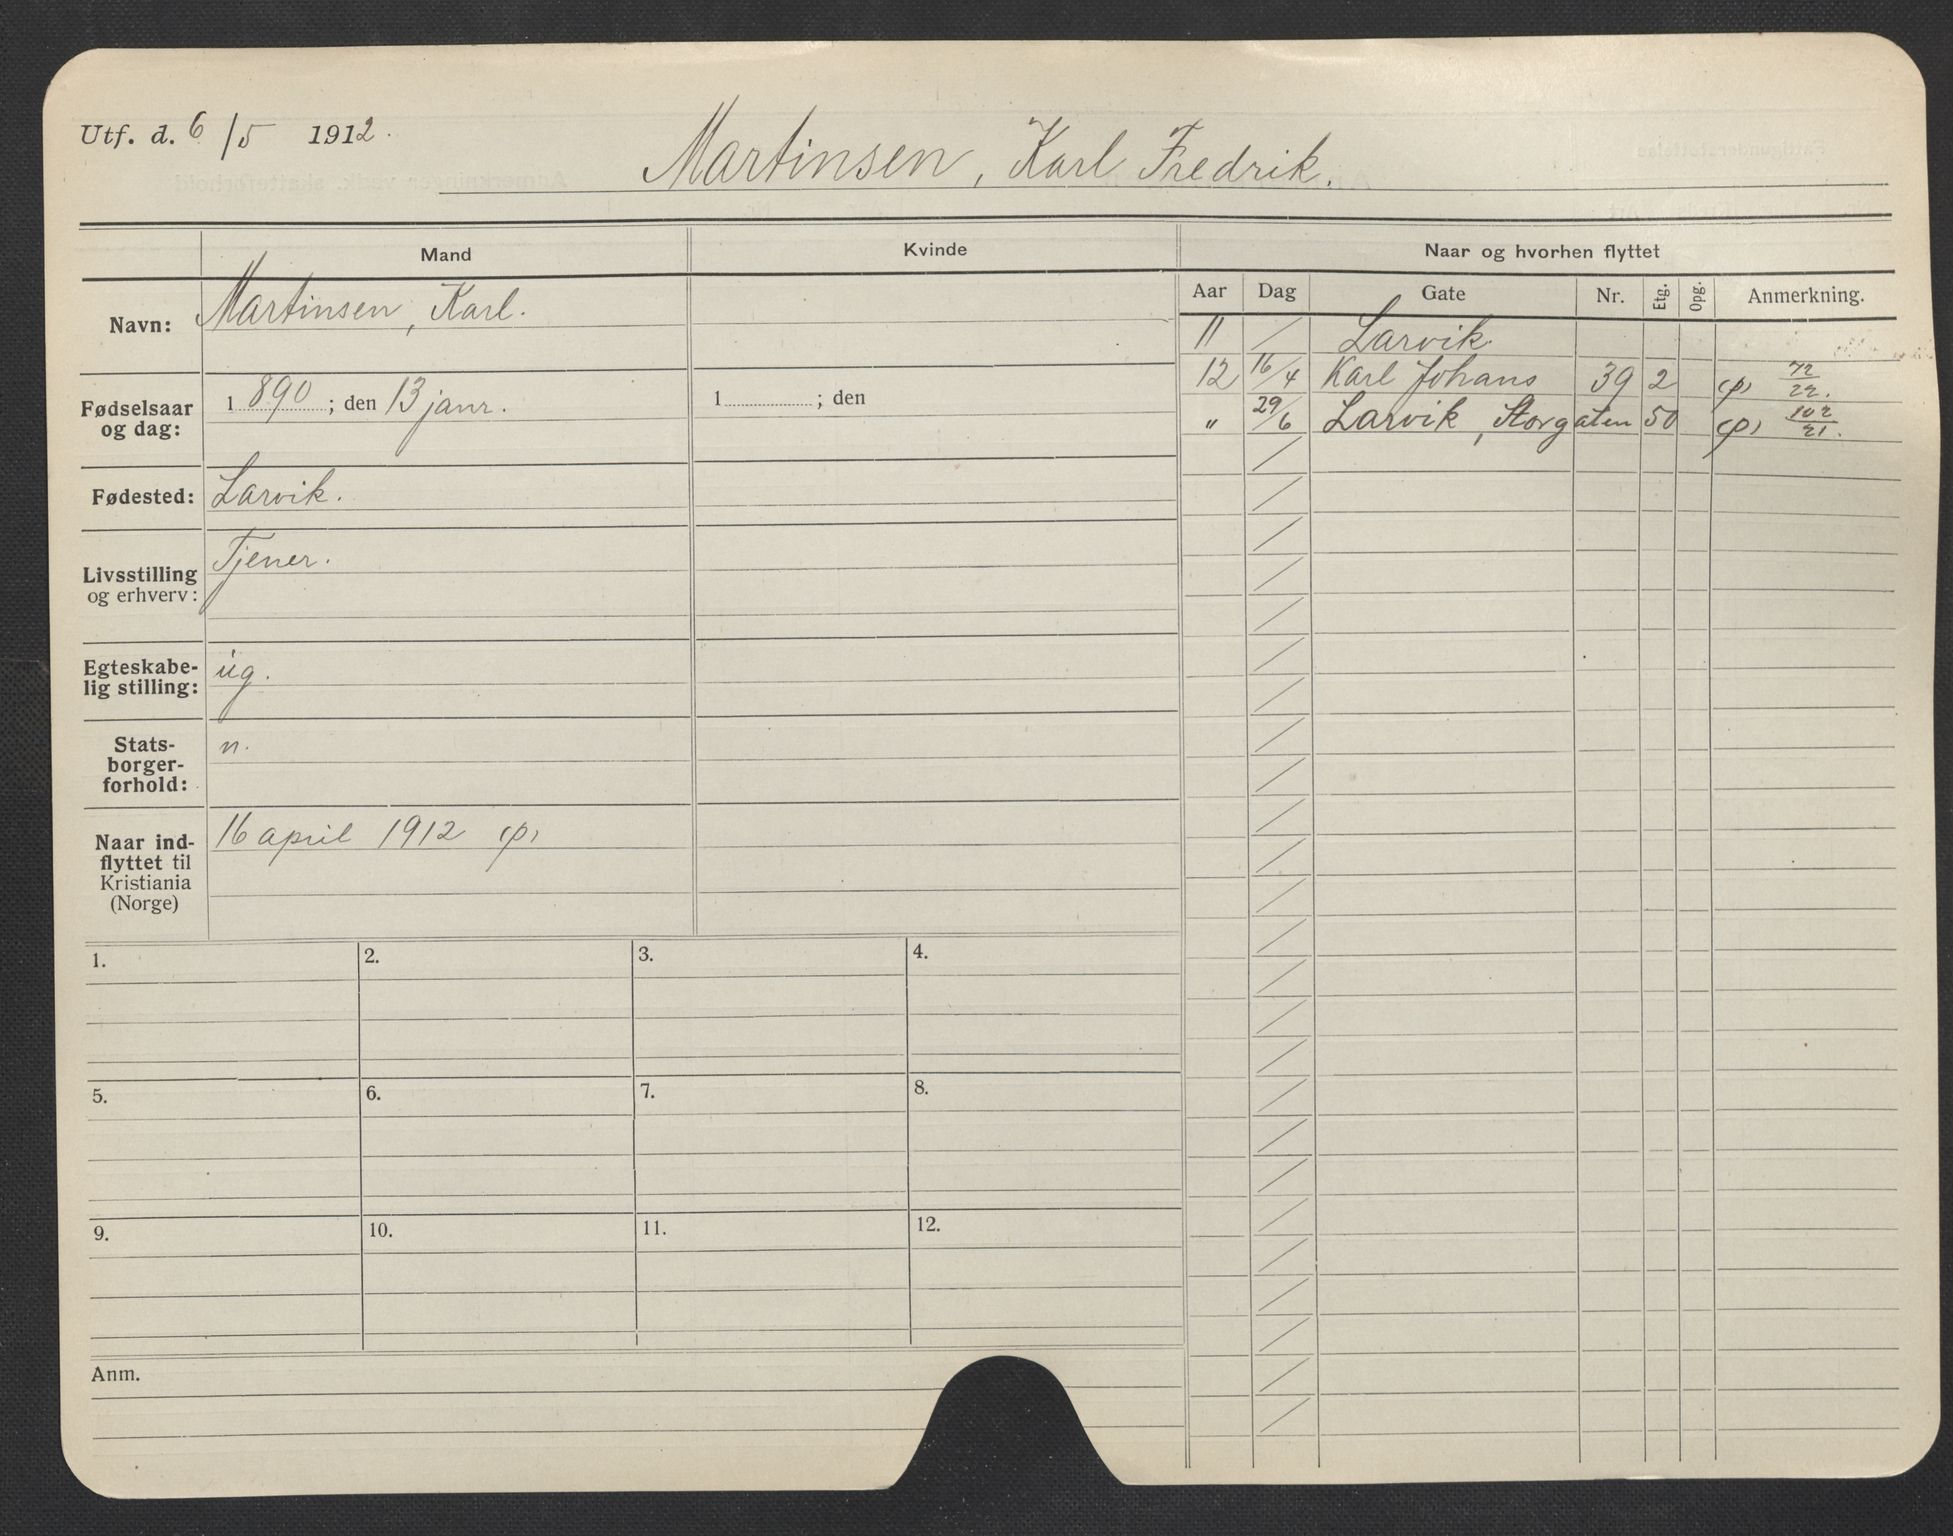 Utf. d. 6/5 1912.
Martinsen, Karl Fredrik.
Mand
Kvinde
Naar og hvorhen flyttet
Navn: Martinsen, Karl.
Fødselsaar og dag: 1890; den 13 janr.
1 ; den
Fødested: Larvik.
Livsstilling og erhverv: Tjener.
Egteskabe-
lig stilling: ug.
Stats-
borger-
forhold: n.
Naar ind-
flyttet til
Kristiania
(Norge) 16 april 1912 (p)
Aar Dag Gate Nr. Etg. Opg. Anmerkning.
11 / Larvik.
12 16/4 Karl Johans 39 2 (p) 72/22.
" 29/6 Larvik, Storgaten 50 (p) 102/21.
1. 2. 3. 4.
5. 6. 7. 8.
9. 10. 11. 12.
Anm.